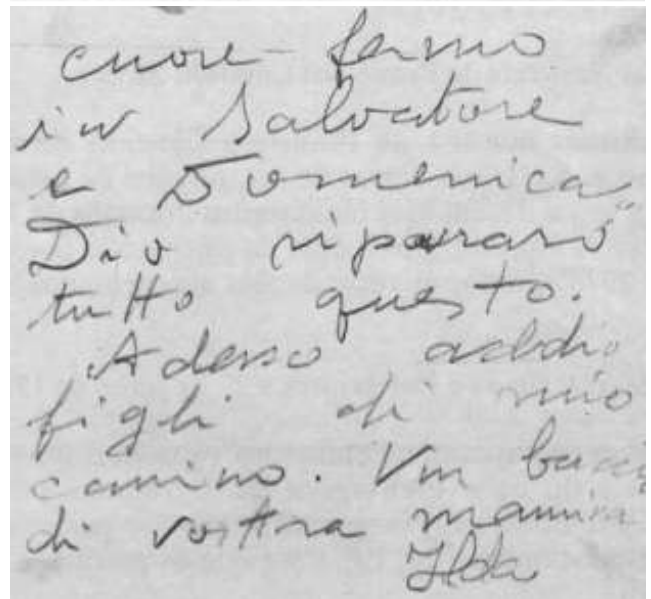 cuore fermo
in Salvatore
e Domenica"
Dio ripararò
tutto questo.
Adesso addio
figli di mio
camino. Vm bacio
di vostra mamma
Ilda